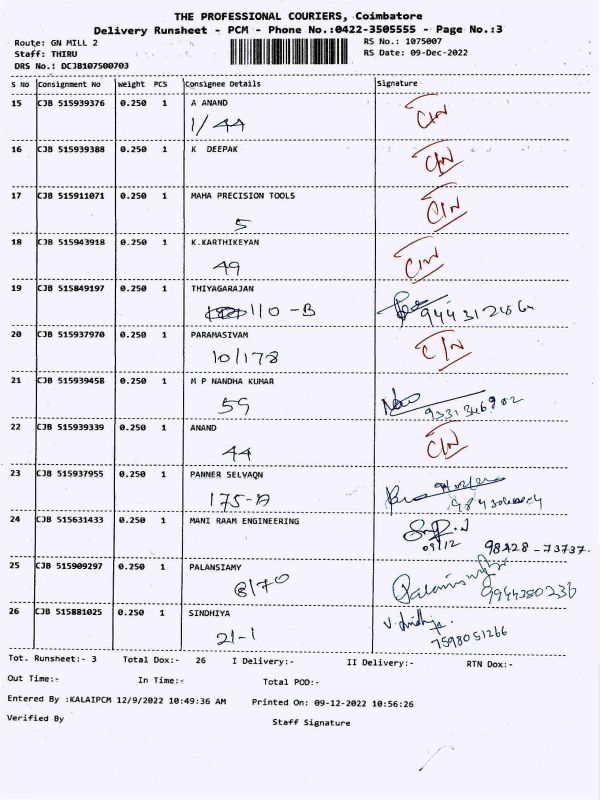 THE PROFESSIONAL COURIERS, Coimbatore
Delivery Runsheet - PCM - Phone No.:0422-3505555 - Page No.:3
Route: GN MILL 2 RS No.: 1075007
Staff: THIRU RS Date: 09-Dec-2022
DRS No.: DCJB107500703
S No Consignment No Weight PCS Consignee Details Signature
15 CJB 515939376 0.250 1 A ANAND
1/44 C/N
16 CJB 515939388 0.250 1 K DEEPAK
C/N
17 CJB 515911071 0.250 1 MAHA PRECISION TOOLS
5 C/N
18 CJB 515943918 0.250 1 K.KARTHIKEYAN
49 C/N
19 CJB 515849197 0.250 1 THIYAGARAJAN
110-B
20 CJB 515937970 0.250 1 PARAMASIVAM
10/178 C/N
21 CJB 515939458 0.250 1 M P NANDHA KUMAR
59
22 CJB 515939339 0.250 1 ANAND
44 C/N
23 CJB 515937955 0.250 1 PANNER SELVAQN
175-A
24 CJB 515631433 0.250 1 MANI RAAM ENGINEERING
09/12 98428-73737.
25 CJB 515909297 0.250 1 PALANSIAMY
8/70 9944380236
26 CJB 515881025 0.250 1 SINDHIYA
21-1 7598051266
Tot. Runsheet:- 3 Total Dox:- 26 I Delivery:- II Delivery:- RTN Dox:-
Out Time:- In Time:- Total POD:-
Entered By :KALAIPCM 12/9/2022 10:49:36 AM Printed On: 09-12-2022 10:56:26
Verified By Staff Signature